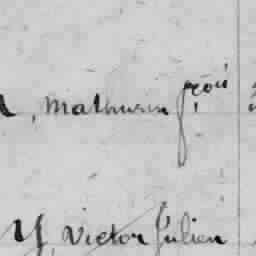 , Mathurin fçois
Y, Victor Julien